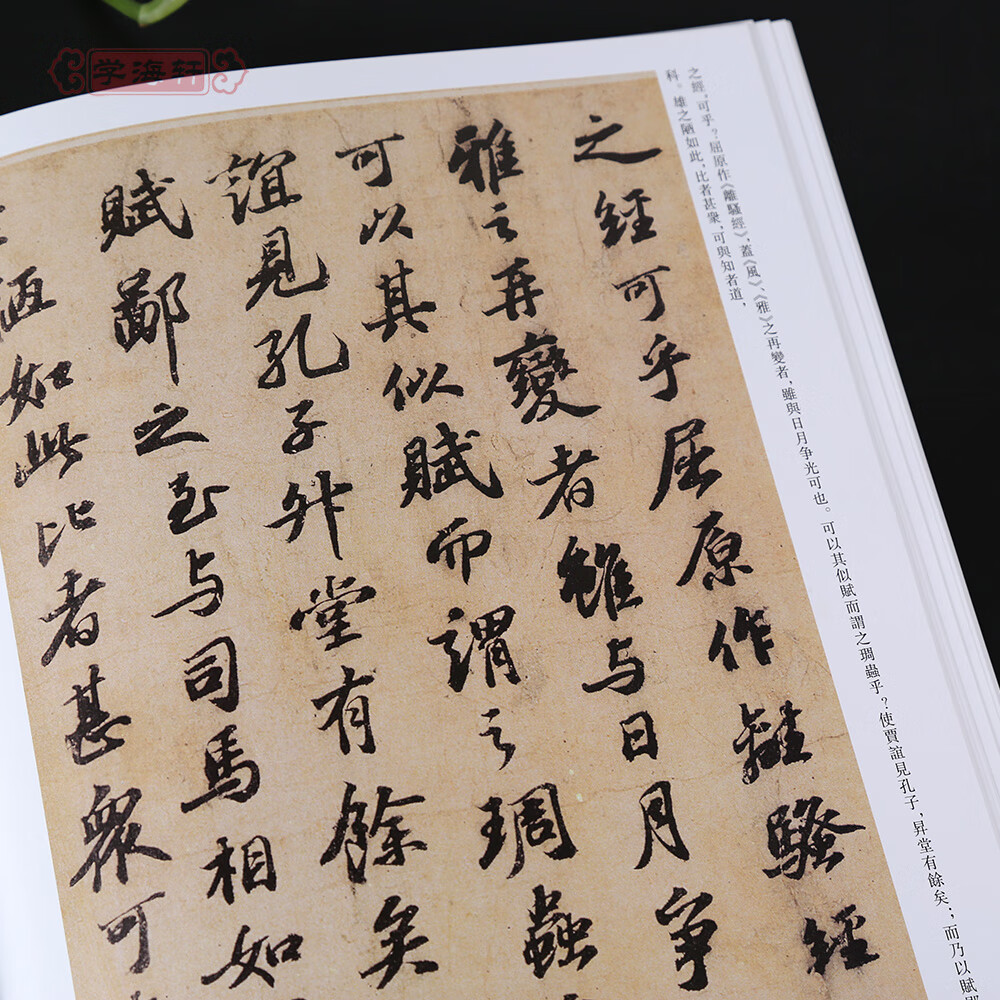 学海轩
之經,可乎?屈原作《離騷經》,蓋《風》、《雅》之再變者,雖與日月争光可也。可以其似賦而謂之琱蟲乎?使賈誼見孔子,昇堂有餘矣;而乃以賦
科。雄之陋如此,比者甚衆,可與知者道,
之經可乎屈原作離騷經
雅之再變者雖与日月争
可以其似賦而謂之琱蟲
誼見孔子升堂有餘矣
賦鄙之至与司馬相如
陋如此比者甚衆可